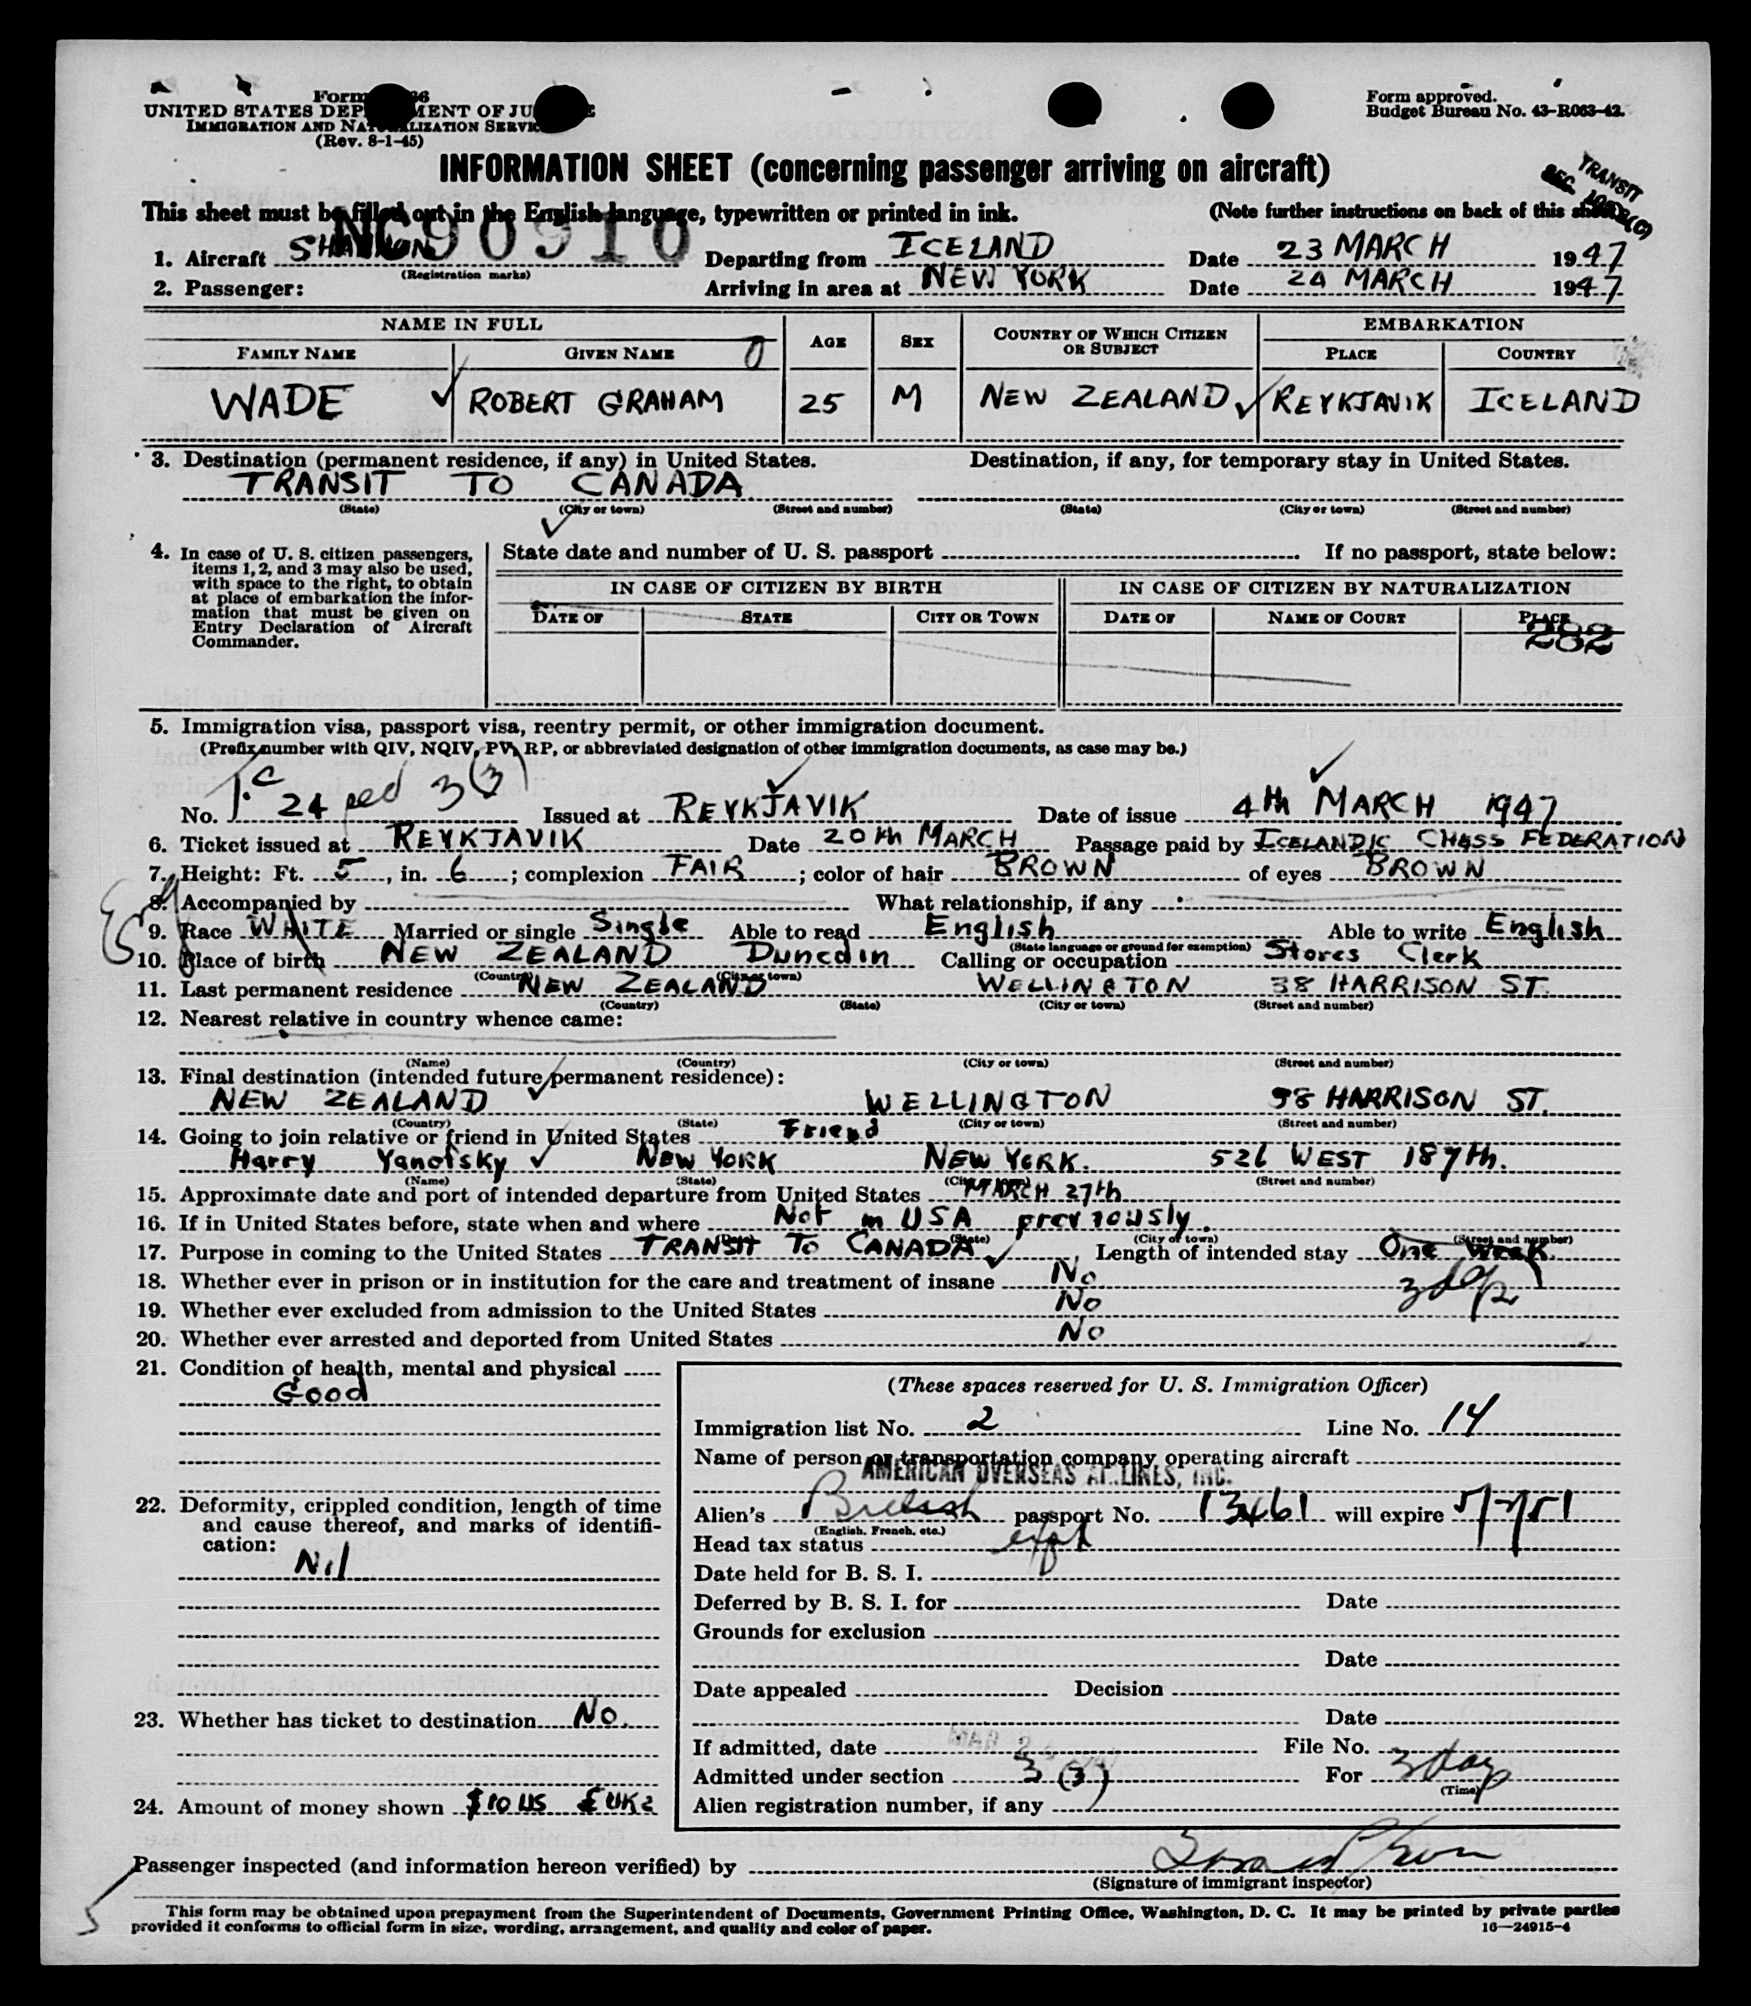 UNITED STATES DEPARTMENT OF JUSTICE
IMMIGRATION AND NATURALIZATION SERVICE
(Rev. 8-1-45)
Form approved.
Budget Bureau No. 43-R063-42.
INFORMATION SHEET (concerning passenger arriving on aircraft)
TRANSIT
This sheet must be filled out in the English language, typewritten or printed in ink.
(Note further instructions on back of this sheet)
NC90910
1. Aircraft SHANNON Departing from ICELAND Date 23 MARCH 1947
(Registration marks)
2. Passenger: Arriving in area at NEW YORK Date 24 MARCH 1947
NAME IN FULL AGE SEX COUNTRY OF WHICH CITIZEN OR SUBJECT EMBARKATION
FAMILY NAME GIVEN NAME PLACE COUNTRY
WADE ROBERT GRAHAM 25 M NEW ZEALAND REYKJAVIK ICELAND
3. Destination (permanent residence, if any) in United States. Destination, if any, for temporary stay in United States.
TRANSIT TO CANADA
(State) (City or town) (Street and number) (State) (City or town) (Street and number)
4. In case of U. S. citizen passengers, items 1, 2, and 3 may also be used, with space to the right, to obtain at place of embarkation the information that must be given on Entry Declaration of Aircraft Commander.
State date and number of U. S. passport If no passport, state below:
IN CASE OF CITIZEN BY BIRTH IN CASE OF CITIZEN BY NATURALIZATION
DATE OF STATE CITY OR TOWN DATE OF NAME OF COURT PLACE
282
5. Immigration visa, passport visa, reentry permit, or other immigration document.
(Prefix number with QIV, NQIV, PV, RP, or abbreviated designation of other immigration documents, as case may be.)
No. 24 3(3) Issued at REYKJAVIK Date of issue 4th MARCH 1947
6. Ticket issued at REYKJAVIK Date 20th MARCH Passage paid by ICELANDIC CHESS FEDERATION
7. Height: Ft. 5, in. 6; complexion FAIR; color of hair BROWN of eyes BROWN
8. Accompanied by What relationship, if any
Eng
9. Race WHITE Married or single Single Able to read English Able to write English
(State language or ground for exemption)
10. Place of birth NEW ZEALAND Dunedin Calling or occupation Stores Clerk
(Country) (City or town)
11. Last permanent residence NEW ZEALAND WELLINGTON 38 HARRISON ST.
(Country) (State) (City or town) (Street and number)
12. Nearest relative in country whence came:
(Name) (Country) (City or town) (Street and number)
13. Final destination (intended future permanent residence):
NEW ZEALAND WELLINGTON 38 HARRISON ST.
(Country) (State) (City or town) (Street and number)
14. Going to join relative or friend in United States Friend
Harry Yanofsky NEW YORK NEW YORK. 526 WEST 187th.
(Name) (State) (City or town) (Street and number)
15. Approximate date and port of intended departure from United States MARCH 27th
16. If in United States before, state when and where Not in USA previously.
(State) (City or town) (Street and number)
17. Purpose in coming to the United States TRANSIT TO CANADA, Length of intended stay One Week.
18. Whether ever in prison or in institution for the care and treatment of insane No
19. Whether ever excluded from admission to the United States No
20. Whether ever arrested and deported from United States No
21. Condition of health, mental and physical
Good
22. Deformity, crippled condition, length of time and cause thereof, and marks of identification:
Nil
23. Whether has ticket to destination No.
24. Amount of money shown $10 US £UK2
(These spaces reserved for U. S. Immigration Officer)
Immigration list No. 2 Line No. 14
Name of person or transportation company operating aircraft
AMERICAN OVERSEAS AIRLINES, INC.
Alien's British passport No. 13461 will expire 5/7/51
(English, French, etc.)
Head tax status
Date held for B. S. I.
Deferred by B. S. I. for Date
Grounds for exclusion
Date
Date appealed Decision
Date
If admitted, date File No.
Admitted under section 3 (3) For 3 days
(Time)
Alien registration number, if any
Passenger inspected (and information hereon verified) by
(Signature of immigrant inspector)
This form may be obtained upon prepayment from the Superintendent of Documents, Government Printing Office, Washington, D. C. It may be printed by private parties
provided it conforms to official form in size, wording, arrangement, and quality and color of paper.
16—24915-4